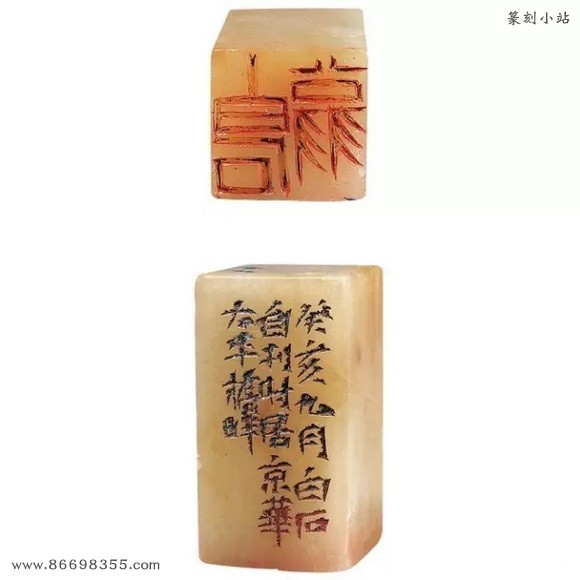 篆刻小站
癸亥九月白石
自刊时居京華
太平橋畔
www.86698355.com